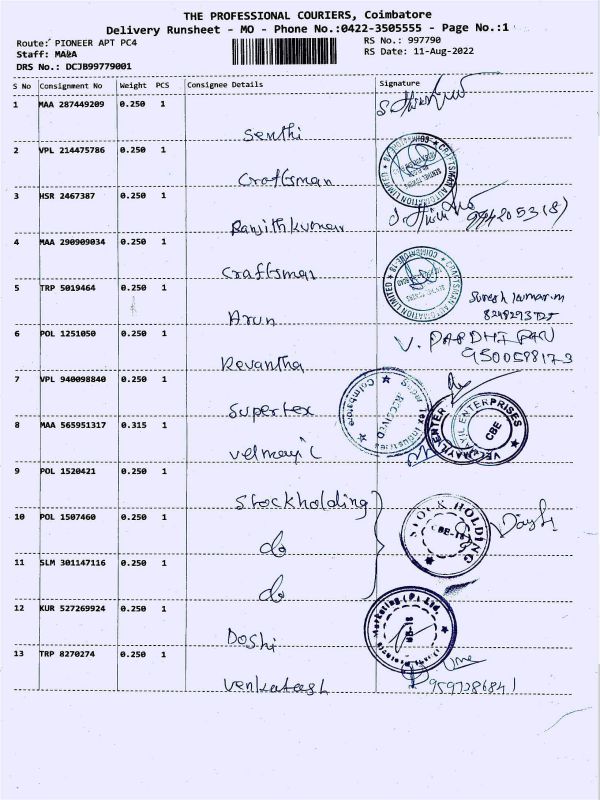 THE PROFESSIONAL COURIERS, Coimbatore
Delivery Runsheet - MO - Phone No.:0422-3505555 - Page No.:1
Route: PIONEER APT PC4
RS No.: 997790
Staff: MALA
RS Date: 11-Aug-2022
DRS No.: DCJB99779001
S No Consignment No Weight PCS Consignee Details Signature
1 MAA 287449209 0.250 1
Senthi
2 VPL 214475786 0.250 1
Craftsman
CRAFTSMAN AUTOMATION LIMITED
3 HSR 2467387 0.250 1
Ranjithkumar
4 MAA 290909034 0.250 1
Craftsman
CRAFTSMAN AUTOMATION LIMITED
5 TRP 5019464 0.250 1
Suresh kumar.m
Arun
6 POL 1251050 0.250 1
Revantha
9500588173
7 VPL 940098840 0.250 1
Supertex
RECEIVED
Coimbatore
8 MAA 565951317 0.315 1
velmayil
VELMAYIL ENTERPRISES
CBE
9 POL 1520421 0.250 1
Stockholding
10 POL 1507460 0.250 1
do
STOCK HOLDING
11 SLM 301147116 0.250 1
do
12 KUR 527269924 0.250 1
Doshi
Marketing (P) Ltd.
13 TRP 8270274 0.250 1
Venkatesh
9597286841